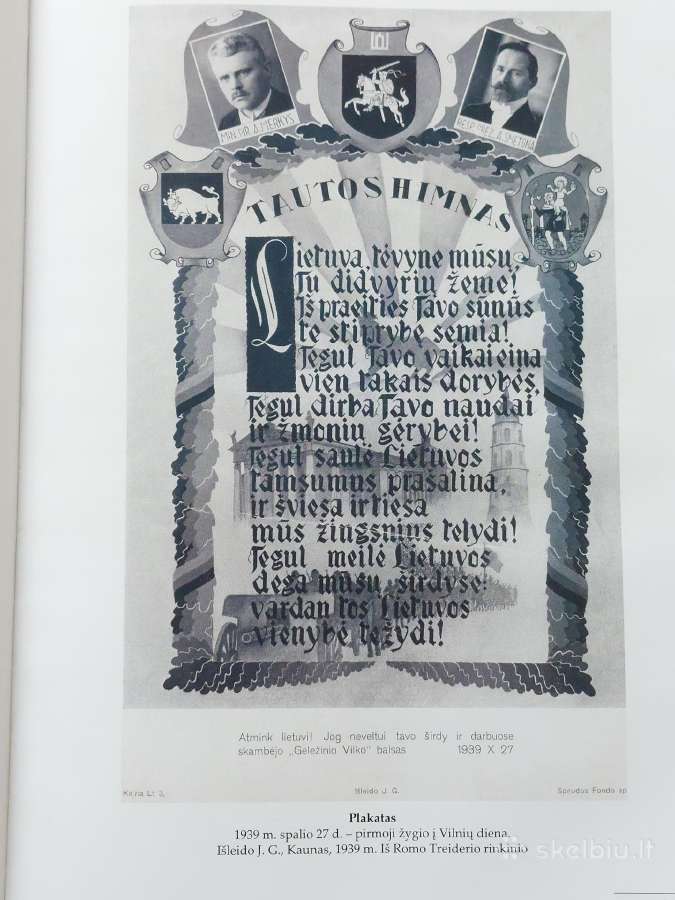 MIN. PIR. A. MERKYS
RESP. PREZ. A. SMETONA
TAUTOS HIMNAS
Lietuva, tėvyne mūsų,
Tu didvyrių žeme!
Iš praeities Tavo sūnūs
te stiprybę semia!
Tegul Tavo vaikai eina
vien takais dorybės,
Tegul dirba Tavo naudai
ir žmonių gėrybei!
Tegul saulė Lietuvos
tamsumus prašalina,
ir šviesa ir tiesa
mūs žingsnius telydi!
Tegul meilė Lietuvos
dega mūsų širdyse:
vardan tos Lietuvos
vienybė težydi!
Atmink lietuvi! Jog neveltui tavo širdy ir darbuose
skambėjo „Geležinio Vilko" balsas 1939 X 27
Kaina Lt 3, Išleido J. G. Spaudos Fondo sp
Plakatas
1939 m. spalio 27 d. – pirmoji žygio į Vilnių diena.
Išleido J. G., Kaunas, 1939 m. Iš Romo Treiderio rinkinio
skelbiu.lt